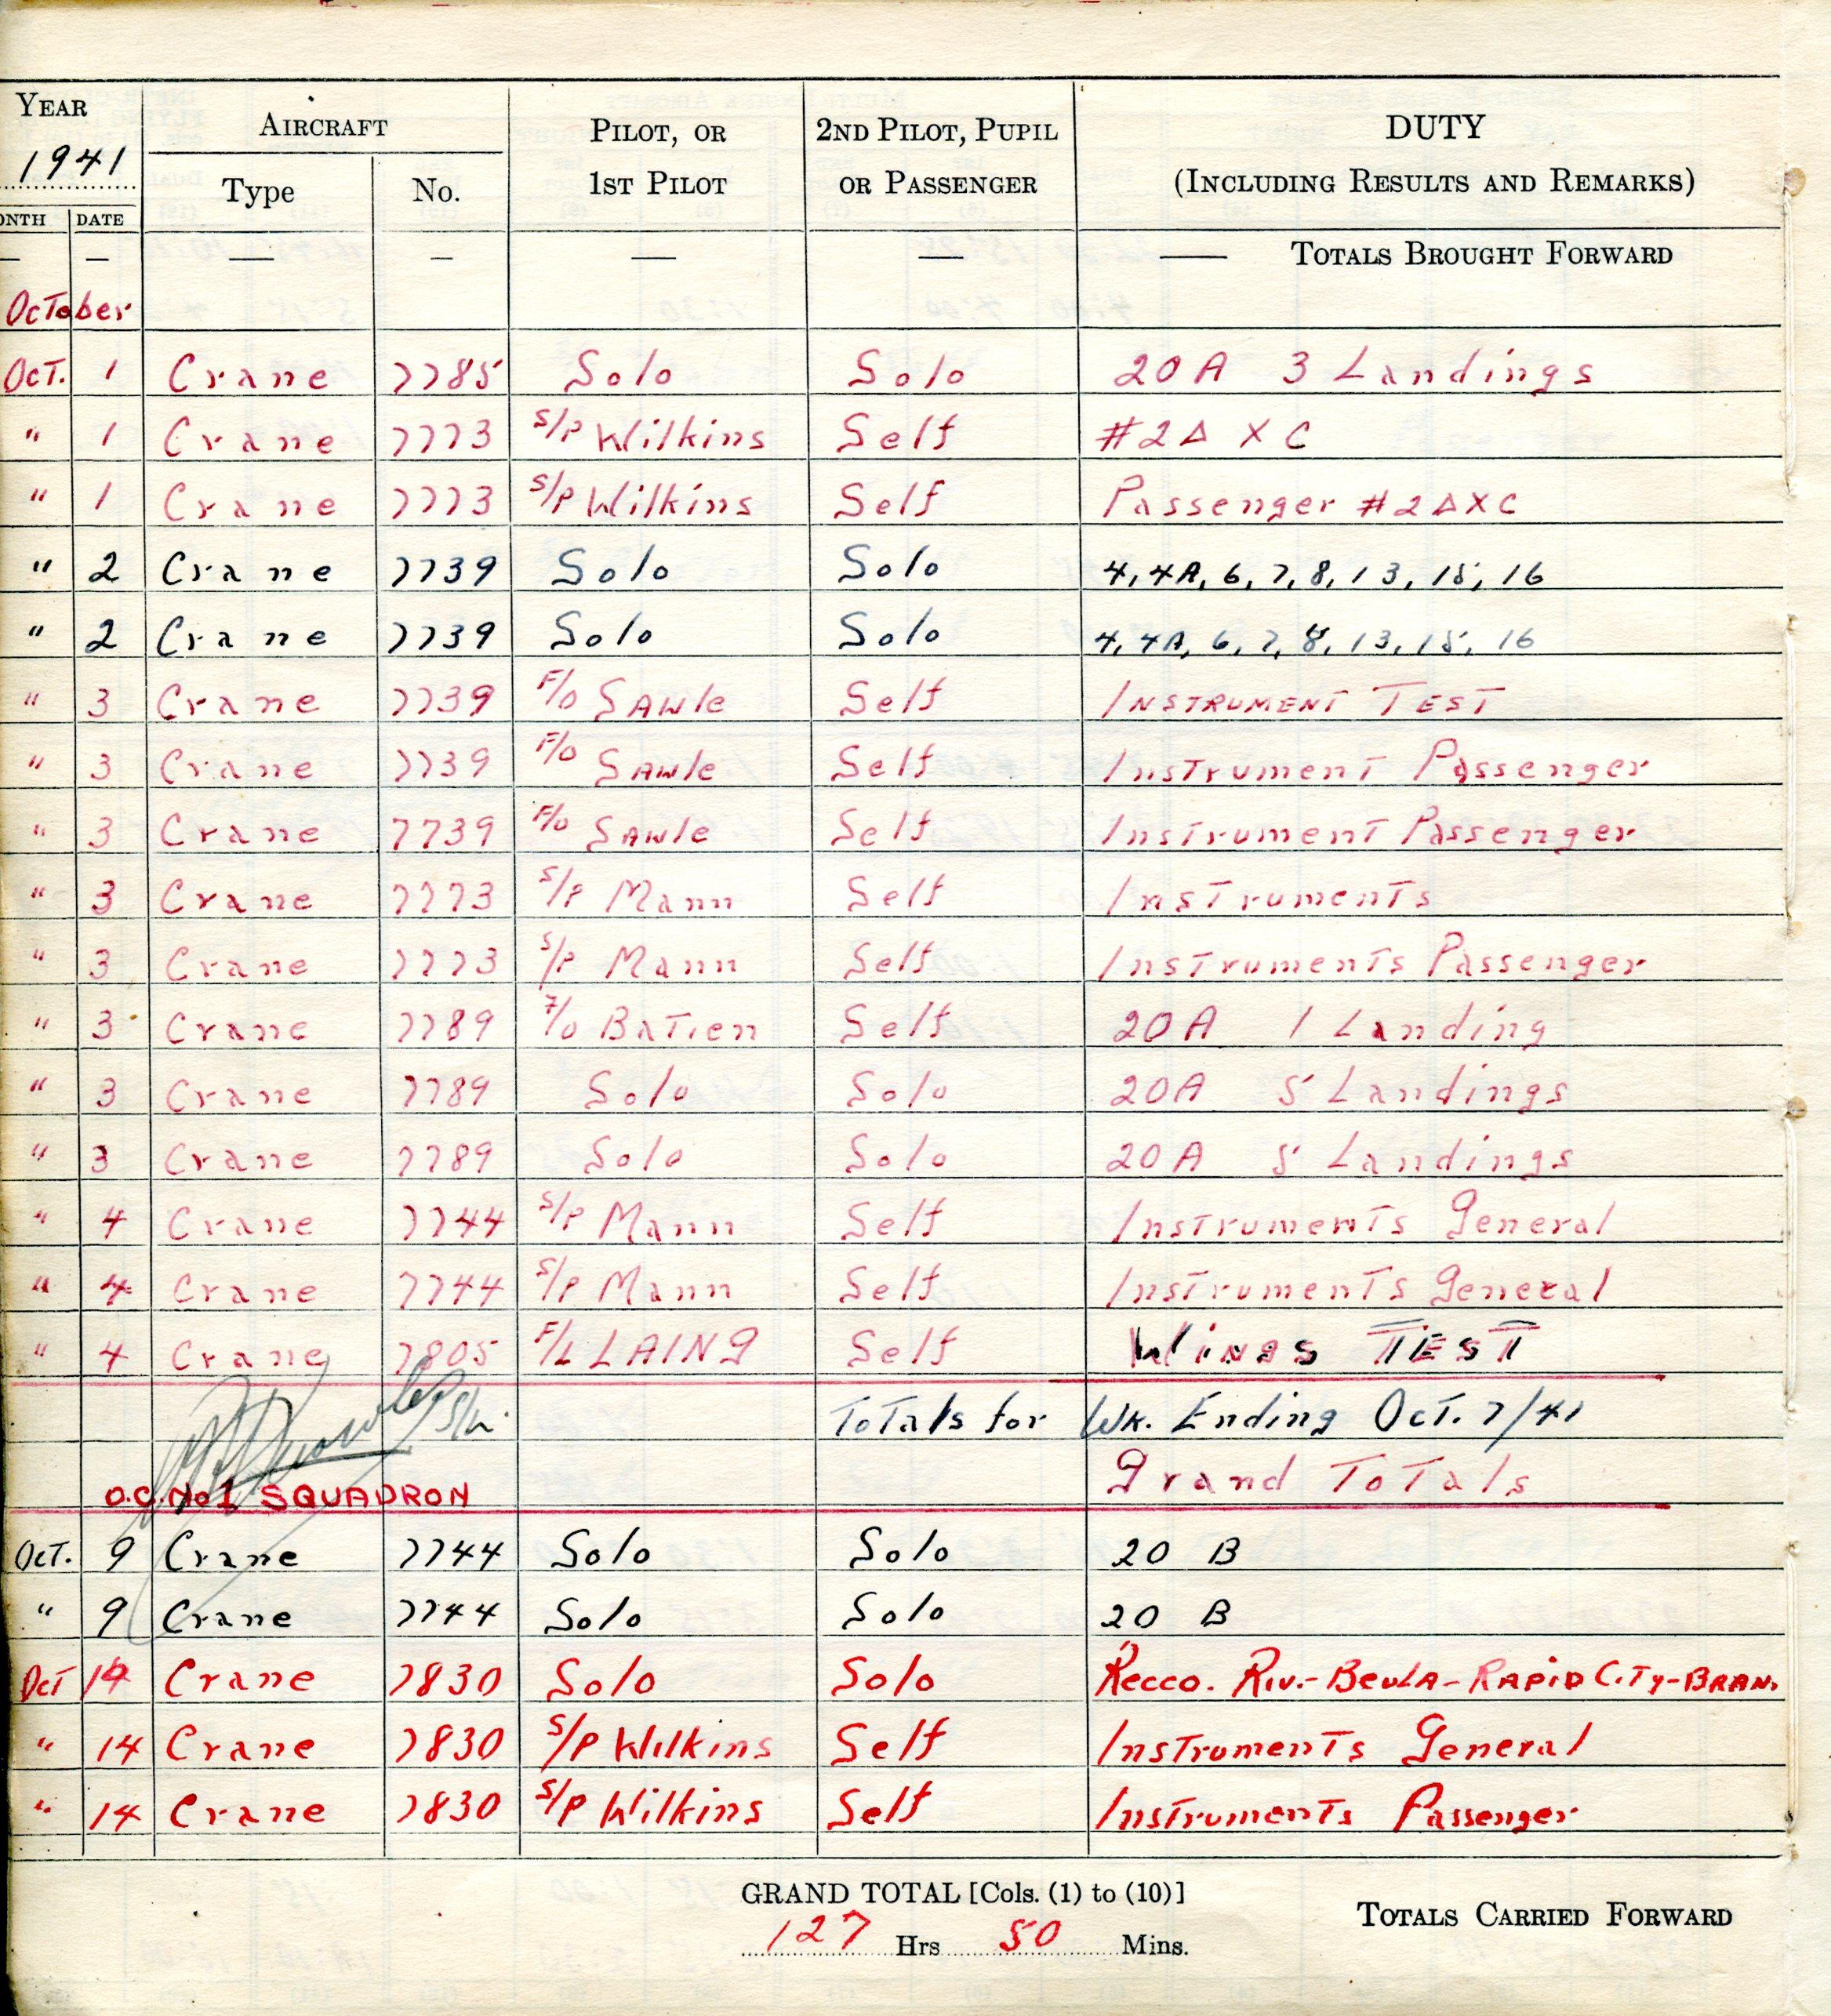 YEAR 1941 AIRCRAFT PILOT, OR 1ST PILOT 2ND PILOT, PUPIL OR PASSENGER DUTY (INCLUDING RESULTS AND REMARKS)
ONTH DATE Type No.
— — — — — — — TOTALS BROUGHT FORWARD
October
Oct. 1 Crane 7785 Solo Solo 20A 3 Landings
" 1 Crane 7773 S/P Wilkins Self #2 Δ X C
" 1 Crane 7773 S/P Wilkins Self Passenger #2 Δ X C
" 2 Crane 7739 Solo Solo 4, 4A, 6, 7, 8, 13, 15, 16
" 2 Crane 7739 Solo Solo 4, 4A, 6, 7, 8, 13, 15, 16
" 3 Crane 7739 F/O Sawle Self INSTRUMENT TEST
" 3 Crane 7739 F/O Sawle Self Instrument Passenger
" 3 Crane 7739 F/O Sawle Self Instrument Passenger
" 3 Crane 7773 S/P Mann Self Instruments
" 3 Crane 7773 S/P Mann Self Instruments Passenger
" 3 Crane 7789 F/O Batien Self 20A 1 Landing
" 3 Crane 7789 Solo Solo 20A 5 Landings
" 3 Crane 7789 Solo Solo 20A 5 Landings
" 4 Crane 7744 S/P Mann Self Instruments General
" 4 Crane 7744 S/P Mann Self Instruments General
" 4 Crane 7805 F/L LAING Self Wings TEST
S/L. Totals for Wk. Ending Oct. 7/41
Grand Totals
O.C. No 1 SQUADRON
Oct. 9 Crane 7744 Solo Solo 20 B
" 9 Crane 7744 Solo Solo 20 B
Oct 14 Crane 7830 Solo Solo Recco. Riv.-Beula-Rapid City-Bran.
" 14 Crane 7830 S/P Wilkins Self Instruments General
" 14 Crane 7830 S/P Wilkins Self Instruments Passenger
GRAND TOTAL [Cols. (1) to (10)]
127 Hrs 50 Mins.
TOTALS CARRIED FORWARD